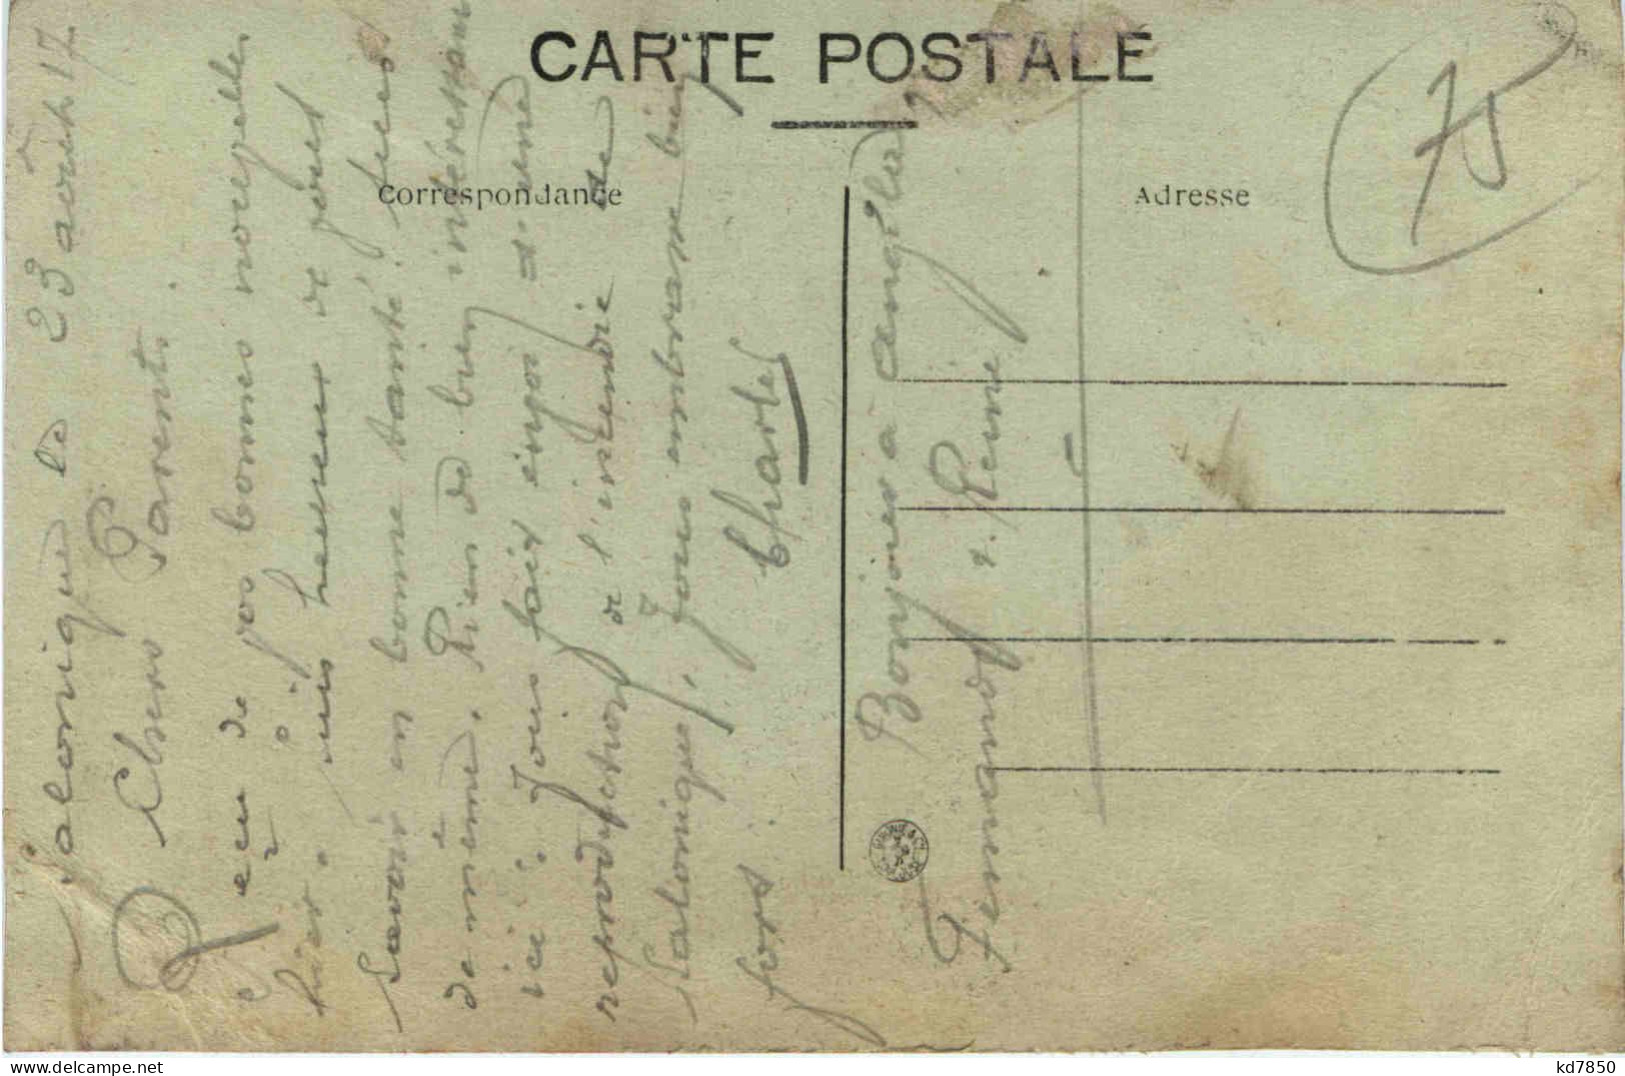 CARTE POSTALE
Correspondance
Adresse
75
Salonique le 23 août 17
Chers Parents.
Reçu de vos bonnes nouvelles
hier. suis heureux de vous
savoir en bonne santé. suis
de même. Rien de bien intéressant
ici. Vous fais envoi d'une
reproduction de l'incendie de
Salonique. Vous embrasse bien
fort.
Charles
Bonjour à Angèle
Fernand, & René
kd7850